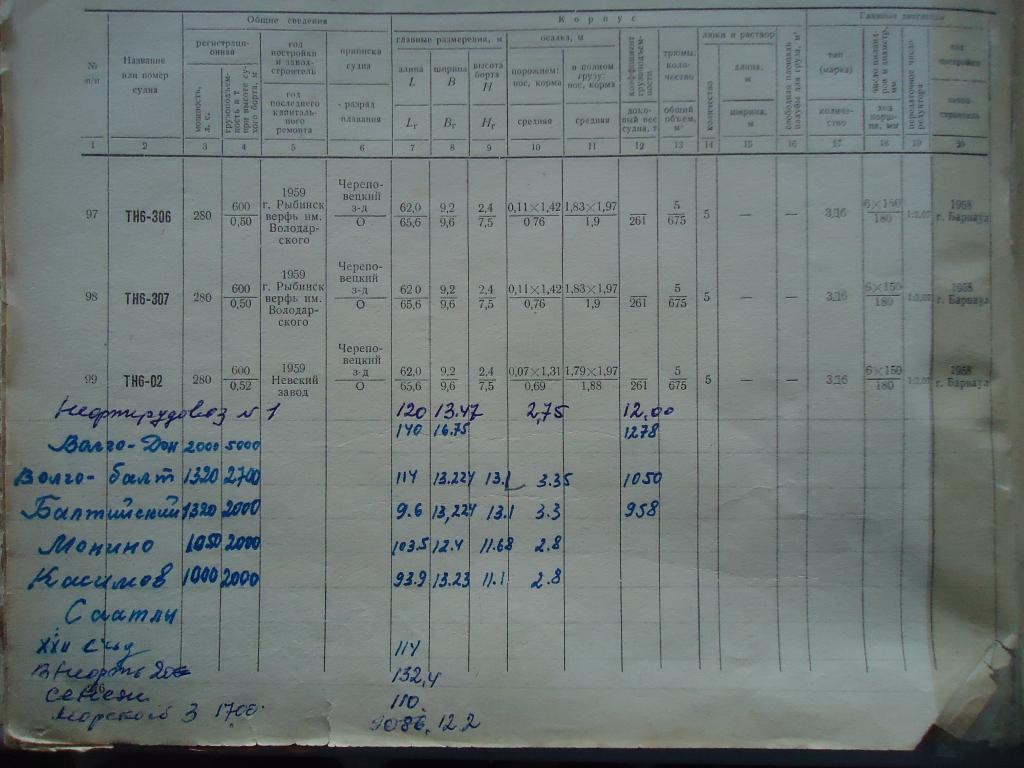 Общие сведения
Корпус
Главные двигатели
№ п/п
Название или номер судна
регистрационная
мощность, л. с.
грузоподъемность в т при высоте сухого борта, м
год постройки и завод-строитель
год последнего капитального ремонта
приписка судна
разряд плавания
главные размерения, м
длина L
Lг
ширина B
Bг
высота борта H
Hг
осадка, м
порожнем: нос, корма
средняя
в полном грузу: нос, корма
средняя
коэффициент грузоподъемности
доковый вес судна, т
трюмы: количество
общий объем, м³
люки и раствор
количество
длина, м
ширина, м
свободная площадь палубы для груза, м²
тип (марка)
количество
число цилиндров и диаметр, мм
ход поршня, мм
передаточное число редуктора
1 2 3 4 5 6 7 8 9 10 11 12 13 14 15 16 17 18 19 20
97 ТН6-306 280 600 0,50 1959 г. Рыбинск верфь им. Володарского Череповецкий з-д О 62,0 65,6 9,2 9,6 2,4 7,5 0,11×1,42 0 76 1,83×1,97 1,9 — 261 5 675 5 — — 3Д6 6×150 180 1:2,07 1958 г. Барнаул
98 ТН6-307 280 600 0,50 1959 г. Рыбинск верфь им. Володарского Череповецкий з-д О 62 0 65,6 9,2 9,6 2,4 7,5 0,11×1,42 0,76 1,83×1,97 1,9 — 261 5 675 5 — — 3Д6 6×150 180 1:2,07 1958 г. Барнаул
99 ТН6-02 280 600 0,52 1959 Невский завод Череповецкий з-д О 62,0 65,6 9,2 9,6 2,4 7,5 0,07×1,31 0,69 1,79×1,97 1,88 — 261 5 675 5 — — 3Д6 6×150 180 1:2,07 1958 г. Барнаул
Нефтерудовоз №1 120 13.47 2,75 12,00
Волго-Дон 2000 5000 140 16.75 1278
Волго-балт 1320 2700 114 13.224 13.1 3.35 1050
Балтийский 1320 2000 9.6 13,224 13.1 3.3 958
Монино 1050 2000 103.5 12.4 11.68 2.8
Касимов 1000 2000 93.9 13.23 11.1 2.8
Саатлы
XXII съезд 114
132,4
Сенеж 110
Морской 3 1700 12.2